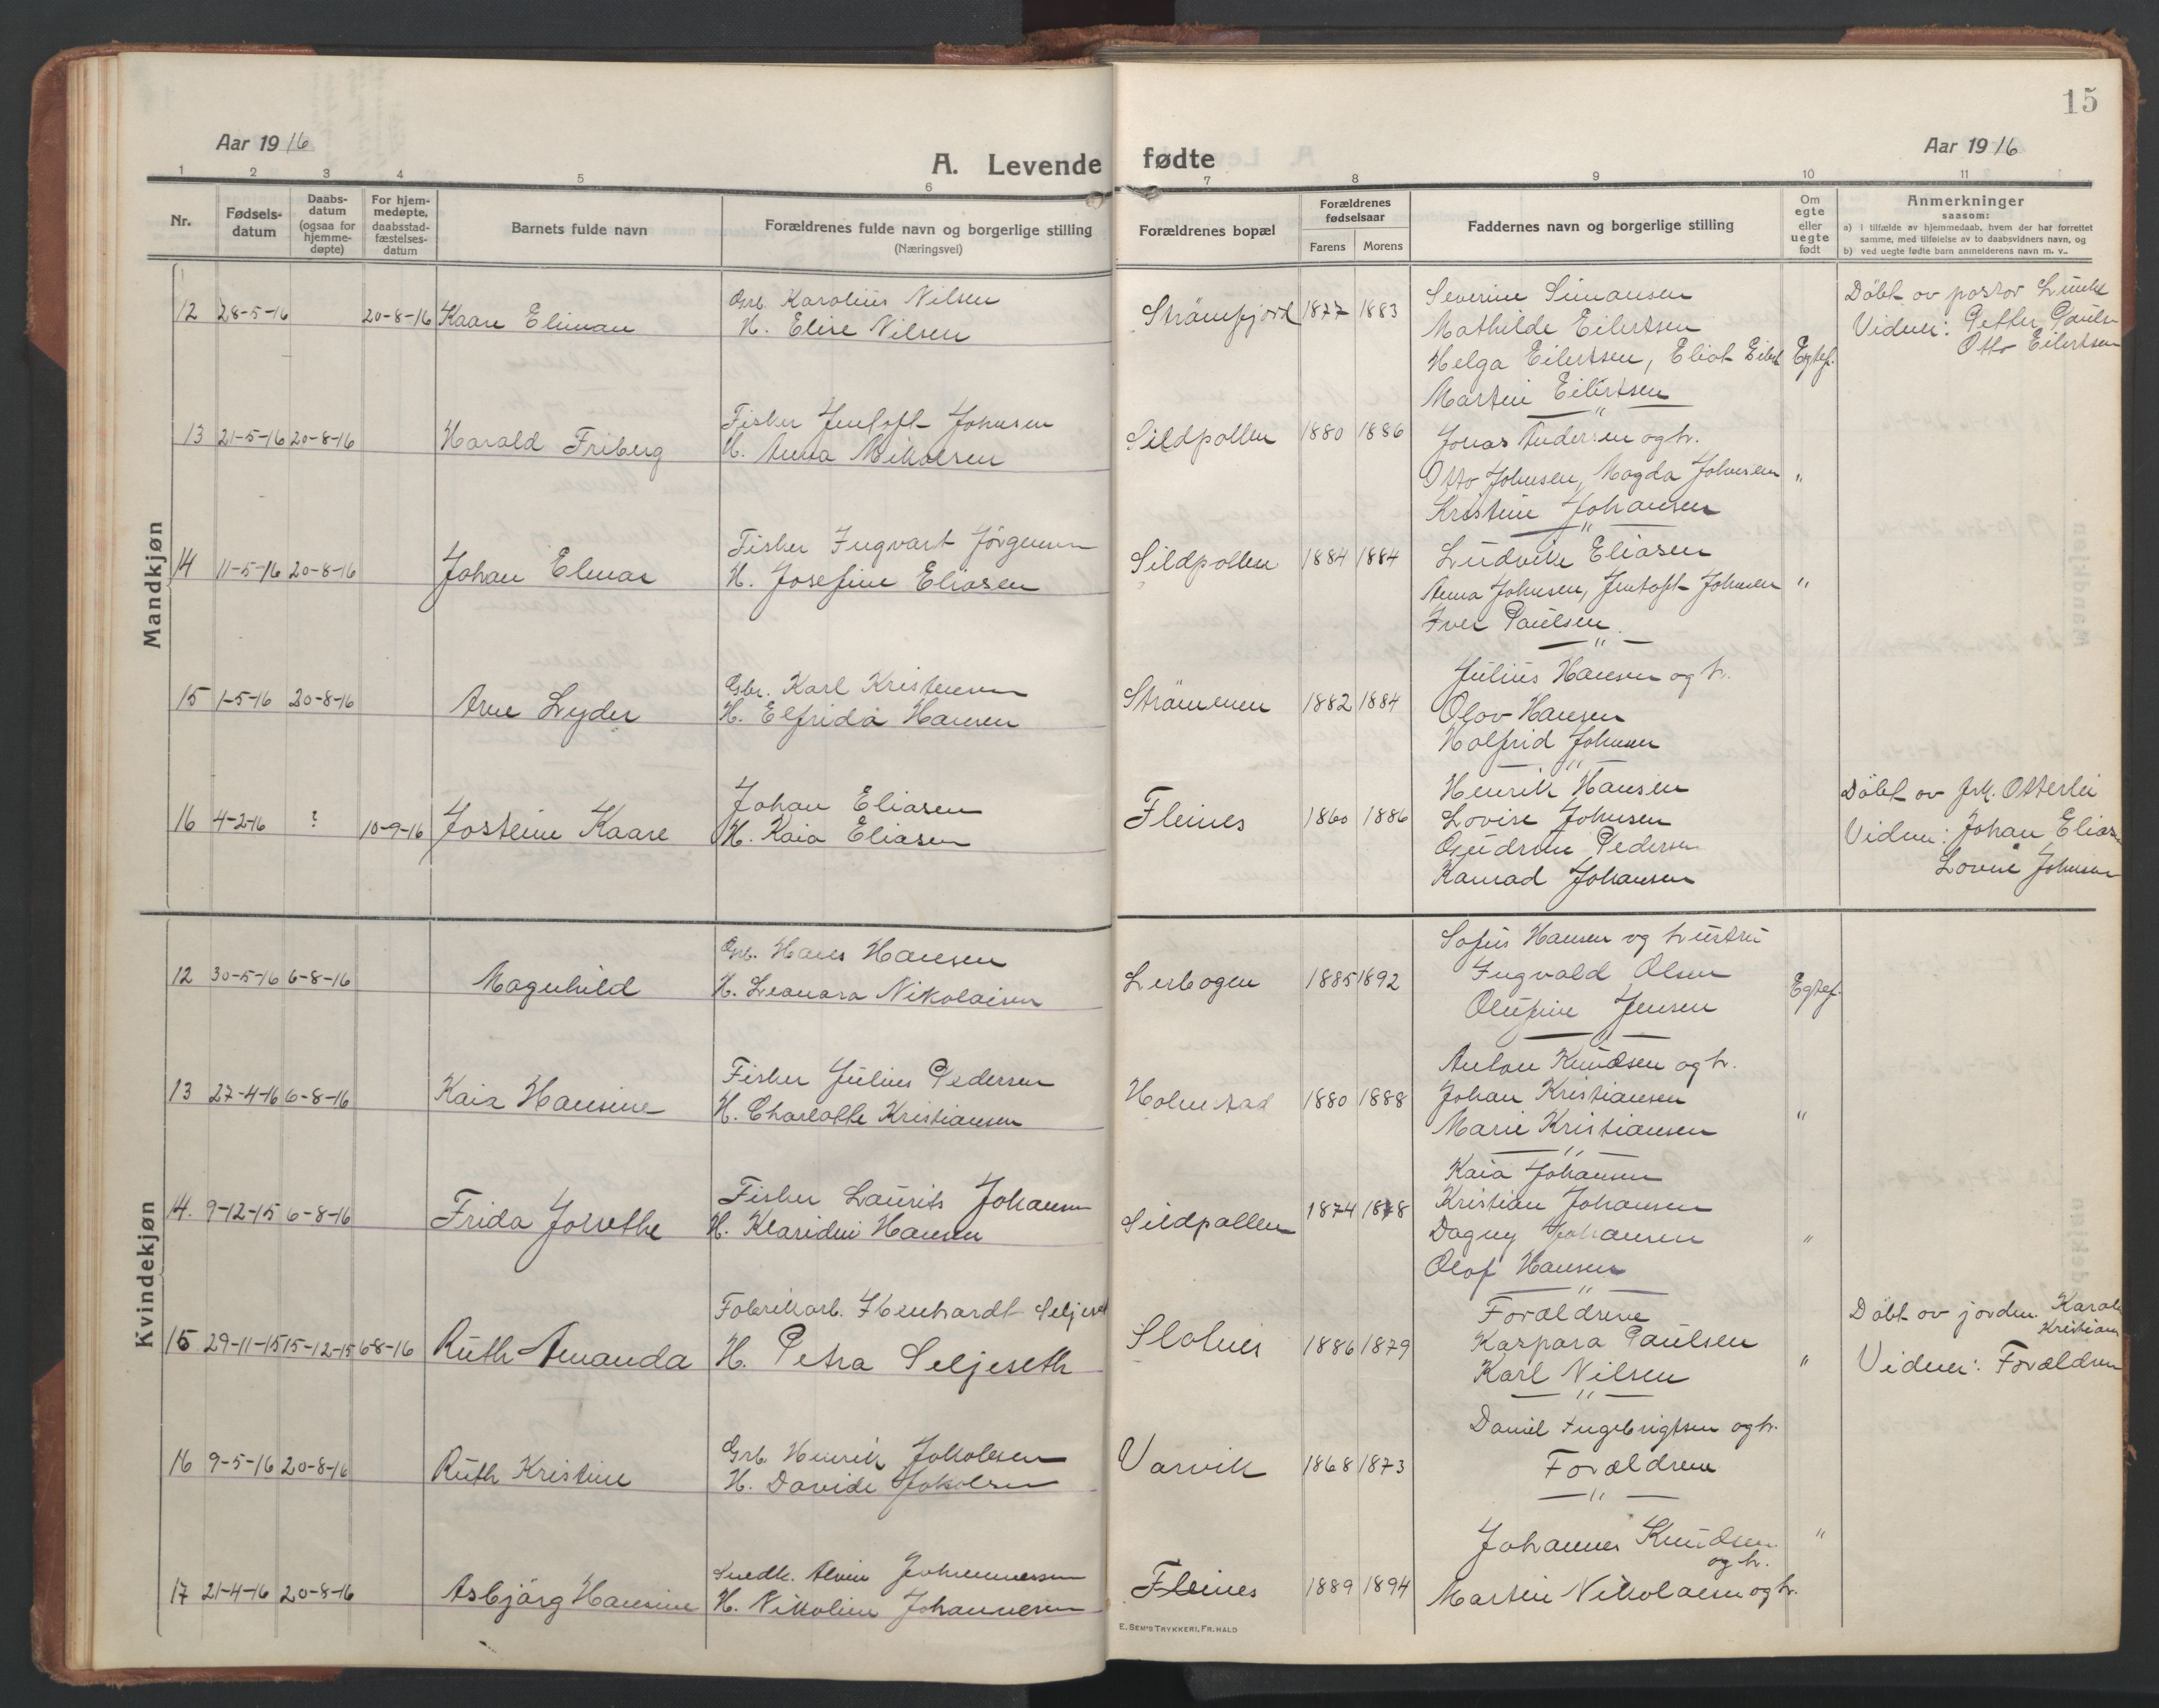 15
Aar 1916
Aar 1916
A. Levende fødte
1 2 3 4 5 6 7 8 9 10 11
Nr.
Fødsels-
datum
Daabs-
datum
(ogsaa for
hjemme-
døpte)
For hjem-
medøpte,
daabsstad-
fæstelses-
datum
Barnets fulde navn
Forældrenes fulde navn og borgerlige stilling
(Næringsvei)
Forældrenes bopæl
Forældrenes
fødselsaar
Farens Morens
Faddernes navn og borgerlige stilling
Om
egte
eller
uegte
født
Anmerkninger
saasom:
a) i tilfælde av hjemmedaab, hvem der har forrettet
samme, med tilføielse av to daabsvidners navn, og
b) ved uegte fødte barn anmelderens navn m. v..
Mandkjøn
12 28-5-16 20-8-16 Kaare
Karolius Nilsen
H. Elise Nilsen
Strömfjord 1877 1883
Severine Simonsen
Mathilde Eilertsen
Helga Eilertsen, Egtef.
Eilertsen
Döbt ov pastor
Vidner: Petter
Otto Eilertsen
13 21-5-16 20-8-16 Harald Friberg
Fisker Jentoft Johnsen
H. Anna
Sildpollen 1880 1886
Jonas Andersen og h.
Otto Johnsen, Magda Johnsen "
Kristine Johansen
14 11-5-16 20-8-16 Johan Elmar
Fisker Ingvart Jörgensen
H. Josefine Eliasen
Sildpollen 1884 1884
Ludvik Eliasen
Anna Johnsen, Jentoft Johnsen "
Iver Paulsen
15 1-5-16 20-8-16 Arne Lyder
Karl Kristensen
H. Elfrida Hansen
Strömmen 1882 1884
Julius Hansen og h.
Olav Hansen
Halfrid Johnsen
16 4-2-16 ? 10-9-16 Josteine Kaare
Johan Eliasen
H. Kaia Eliasen
Fleines 1860 1886
Henrik Hansen
Lovise Johnsen
Gudrun Pedersen
Konrad Johansen
Döbt ov frk. Otterlei
Vidner: Johan Eliasen
Lovise Johnsen
Kvindekjøn
12 30-5-16 6-8-16 Magnhild
Hans Hansen
H. Leonara Nikolaisen
Lerbogen 1885 1892
Sofus Hansen og hustru
Ingvald Olsen
Olufine Jensen
Egtef.
13 27-4-16 6-8-16 Kaia Hansine
Fisker Julius Pedersen
H. Charlotte Kristiansen
Holmstad 1880 1888
Anton Knudsen og h.
Johan Kristiansen
Marie Kristiansen "
14. 9-12-15 6-8-16 Frida Jorethe
Fisker Laurits Johansen
H. Hansen
Sildpollen 1874 1878
Kaia Johansen
Kristian Johansen
Dagny Johansen "
Olof Hansen
15 29-11-15 15-12-15 6-8-16 Ruth Amanda
Fabrikarb.
H. Petra Seljeseth
Slotnes 1886 1879
Forældrene
Kaspara Paulsen
Karl Nilsen "
Döbt ov jordm.
Vidner: Forældrene
16 9-5-16 20-8-16 Ruth Kristine
Grb. Henrik Jakobsen
H. Davide Jakobsen
Varvik 1868 1873
Daniel Ingebrigtsen og h.
Forældrene
17 21-4-16 20-8-16 Asbjörg Hansine
Snedk. Johannessen
H. Nikoline Johannesen
Fleines 1889 1894
Johannes Knudsen "
og h.
Martin Nikolaisen og h.
E. SEM'S TRYKKERI, FR.HALD